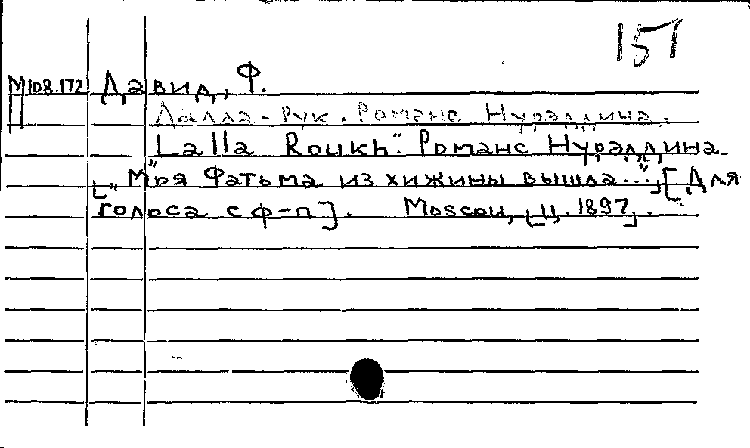 157
М108.172 Давид, Ф.
Лалла-Рук. Романс Нурэддина.
Lalla Roukh". Романс Нурэддина.
["Моя Фатьма из хижины вышла..."], [Для
голоса с ф-п]. Moscou, [11. 1897].